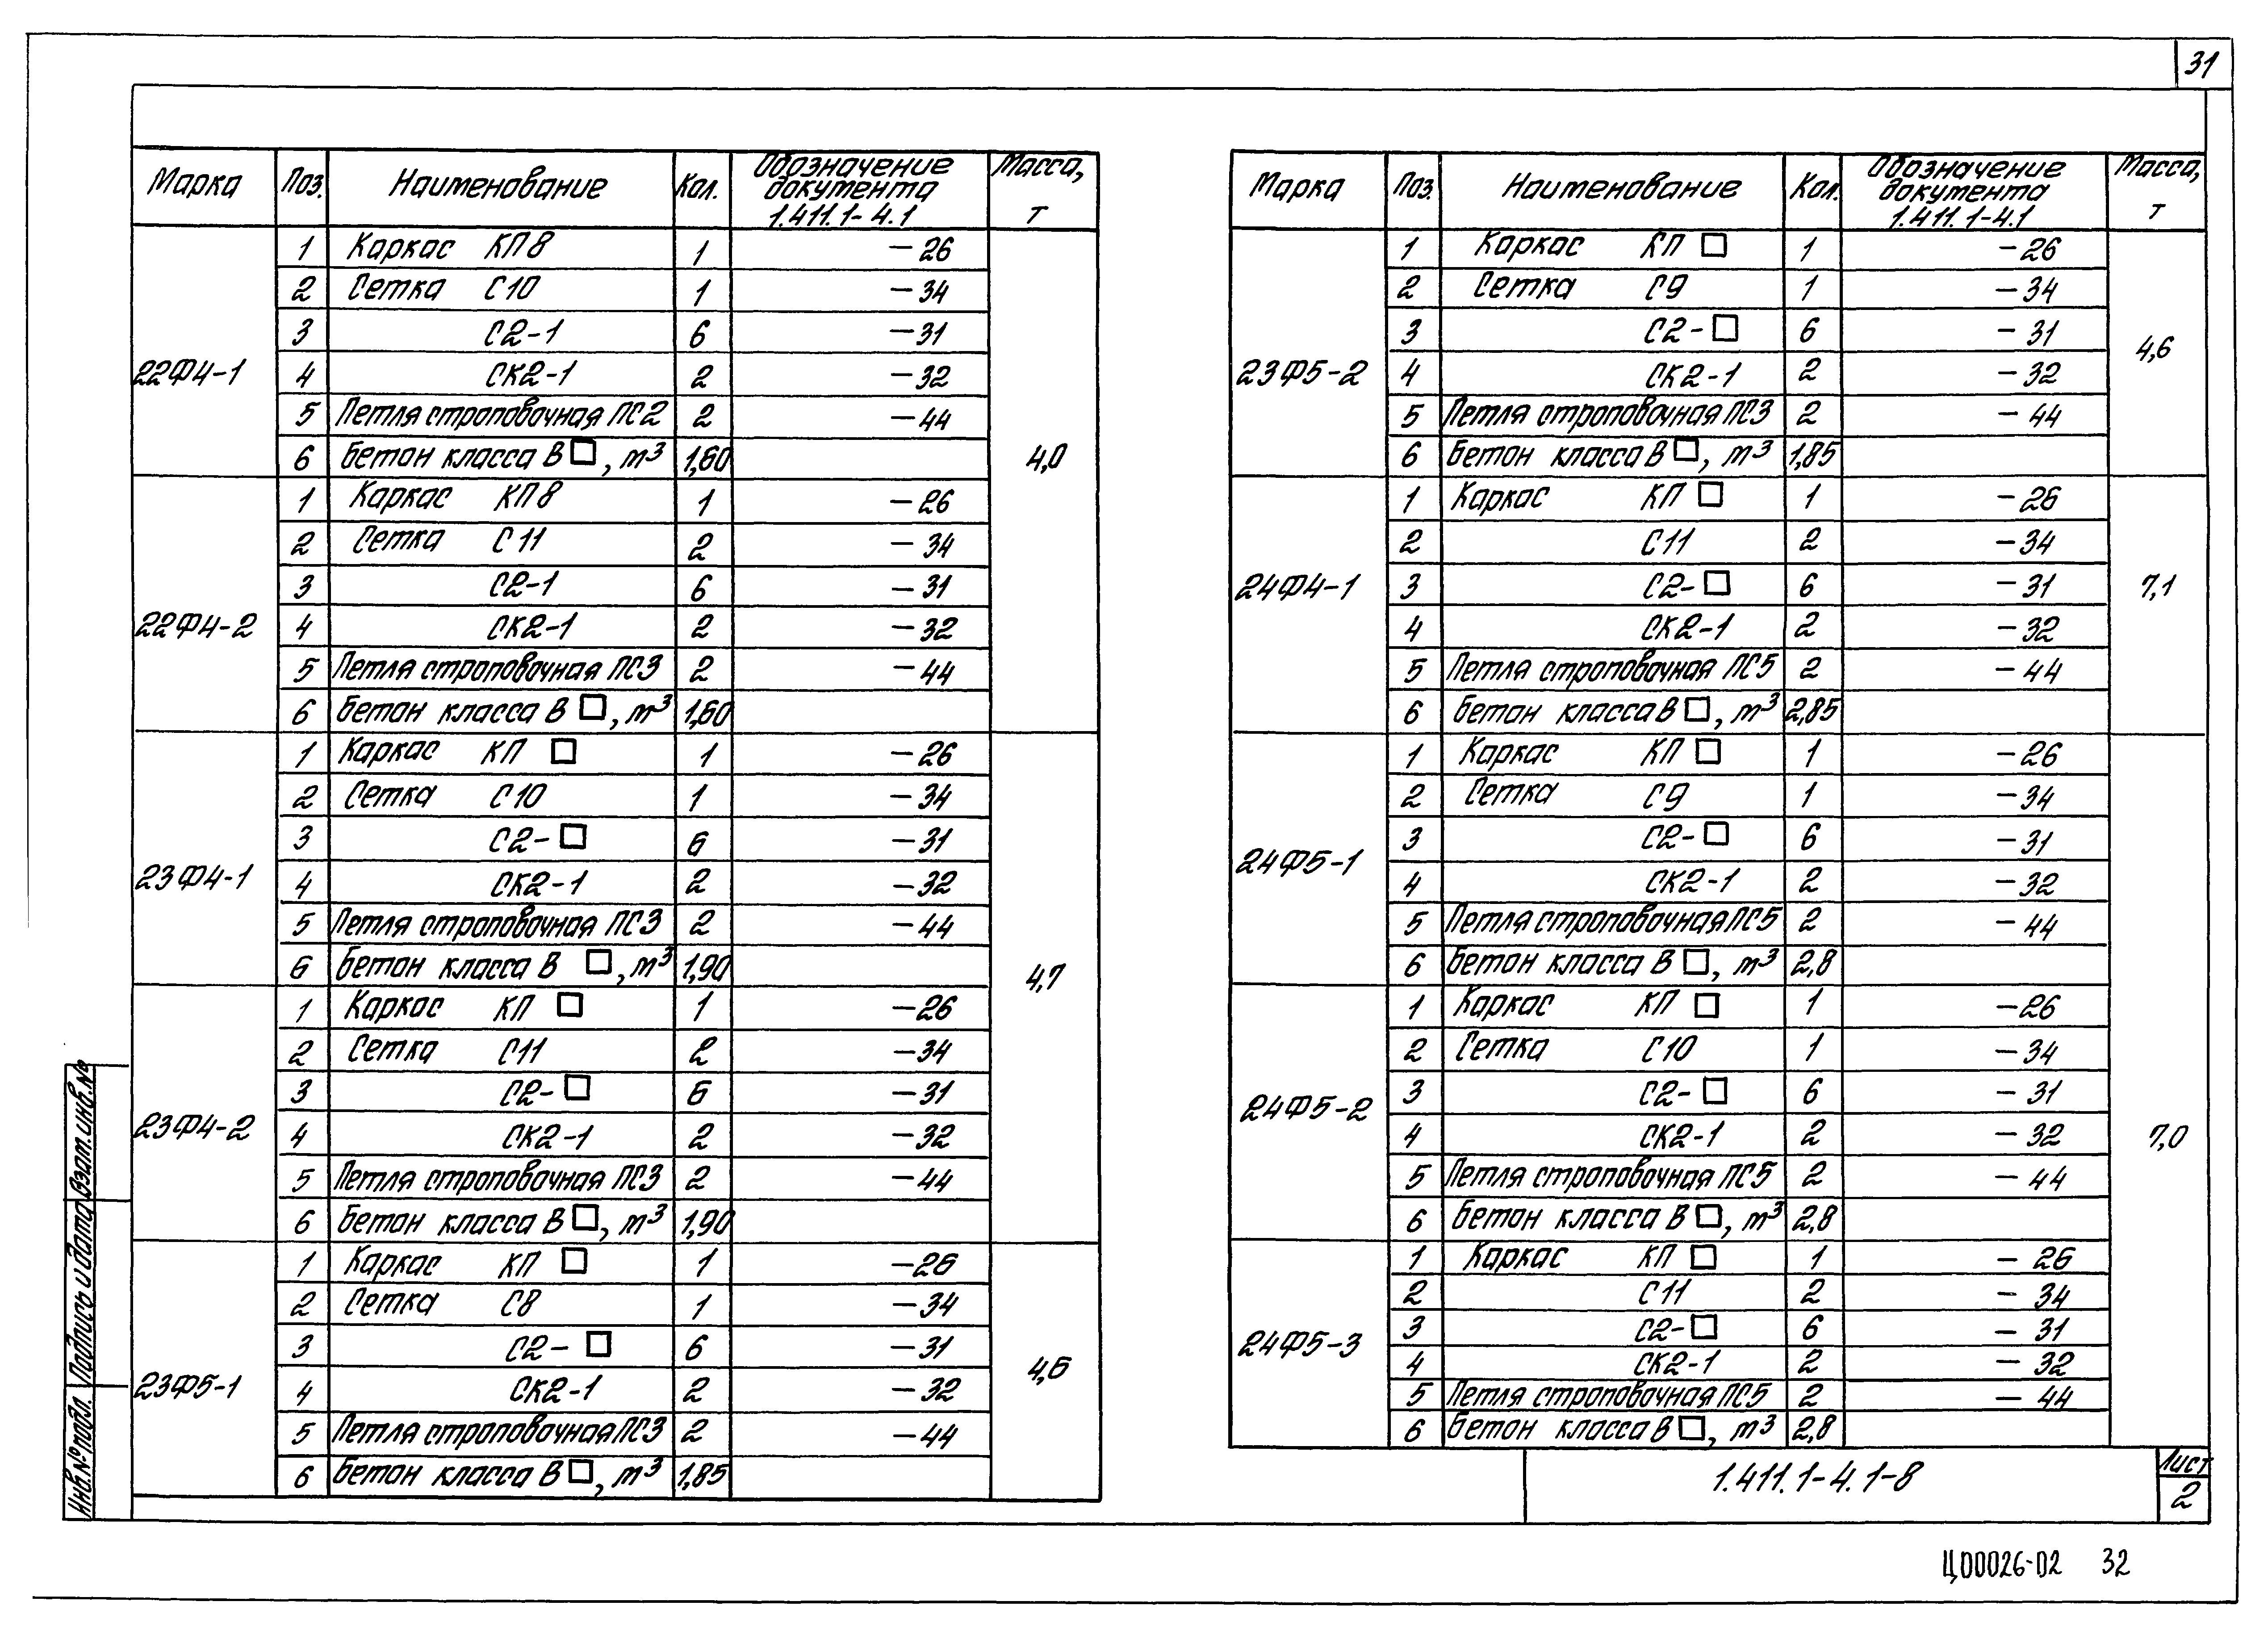 31
Марка Поз. Наименование Кол. Обозначение документа 1.411.1-4.1 Масса, т
22Ф4-1 4,0
1 Каркас КП8 1 -26
2 Сетка С10 1 -34
3 С2-1 6 -31
4 СК2-1 2 -32
5 Петля строповочная ПС2 2 -44
6 Бетон класса В □, м³ 1,60
22Ф4-2
1 Каркас КП8 1 -26
2 Сетка С11 2 -34
3 С2-1 6 -31
4 СК2-1 2 -32
5 Петля строповочная ПС3 2 -44
6 Бетон класса В □, м³ 1,60
23Ф4-1 4,7
1 Каркас КП □ 1 -26
2 Сетка С10 1 -34
3 С2-□ 6 -31
4 СК2-1 2 -32
5 Петля строповочная ПС3 2 -44
6 Бетон класса В □, м³ 1,90
23Ф4-2
1 Каркас КП □ 1 -26
2 Сетка С11 2 -34
3 С2-□ 6 -31
4 СК2-1 2 -32
5 Петля строповочная ПС3 2 -44
6 Бетон класса В □, м³ 1,90
23Ф5-1 4,6
1 Каркас КП □ 1 -26
2 Сетка С8 1 -34
3 С2-□ 6 -31
4 СК2-1 2 -32
5 Петля строповочная ПС3 2 -44
6 Бетон класса В □, м³ 1,85
Марка Поз. Наименование Кол. Обозначение документа 1.411.1-4.1 Масса, т
23Ф5-2 4,6
1 Каркас КП □ 1 -26
2 Сетка С9 1 -34
3 С2-□ 6 -31
4 СК2-1 2 -32
5 Петля строповочная ПС3 2 -44
6 Бетон класса В □, м³ 1,85
24Ф4-1 7,1
1 Каркас КП □ 1 -26
2 С11 2 -34
3 С2-□ 6 -31
4 СК2-1 2 -32
5 Петля строповочная ПС5 2 -44
6 Бетон класса В □, м³ 2,85
24Ф5-1 7,0
1 Каркас КП □ 1 -26
2 Сетка С9 1 -34
3 С2-□ 6 -31
4 СК2-1 2 -32
5 Петля строповочная ПС5 2 -44
6 Бетон класса В □, м³ 2,8
24Ф5-2
1 Каркас КП □ 1 -26
2 Сетка С10 1 -34
3 С2-□ 6 -31
4 СК2-1 2 -32
5 Петля строповочная ПС5 2 -44
6 Бетон класса В □, м³ 2,8
24Ф5-3
1 Каркас КП □ 1 -26
2 С11 2 -34
3 С2-□ 6 -31
4 СК2-1 2 -32
5 Петля строповочная ПС5 2 -44
6 Бетон класса В □, м³ 2,8
Инв.№ подл. Подпись и дата Взам.инв.№
1.411.1-4.1-8
Лист
2
Ц00026-02 32